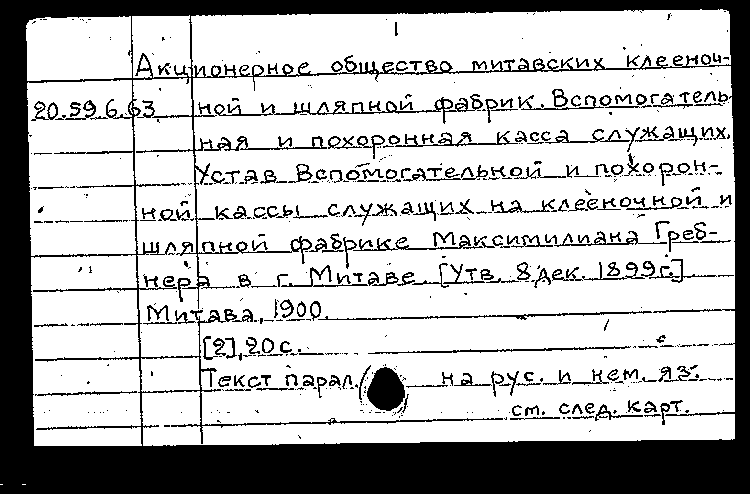 1
Акционерное общество митавских клееноч-
20.59.6.63 ной и шляпной фабрик. Вспомогатель
ная и похоронная касса служащих.
Устав Вспомогательной и похорон-
ной кассы служащих на клееночной и
шляпной фабрике Максимилиана Греб-
нера в г. Митаве. [Утв. 8 дек. 1899г.]
Митава, 1900.
[2], 20 с.
Текст парал. на рус. и нем. яз.
см. след. карт.